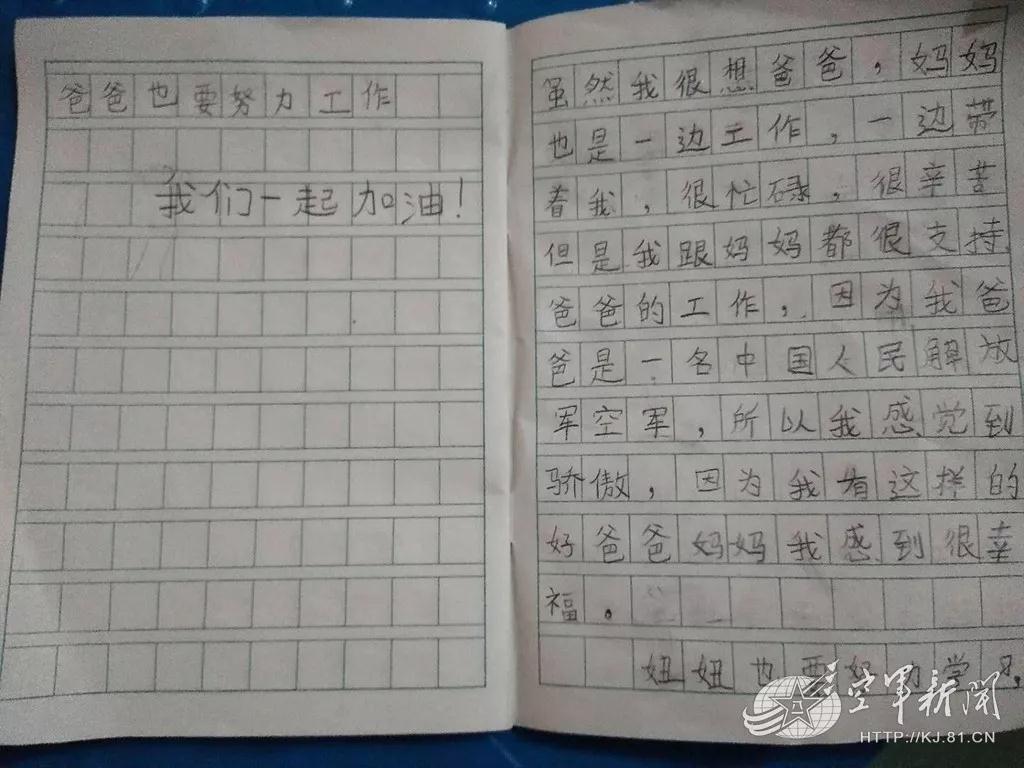 虽然我很想爸爸，妈妈
也是一边工作，一边带
着我，很忙碌，很辛苦
但是我跟妈妈都很支持
爸爸的工作，因为我爸
爸是一名中国人民解放
军空军，所以我感觉到
骄傲，因为我有这样的
好爸爸妈妈我感到很幸
福。
妞妞也要努力学习，
爸爸也要努力工作
我们一起加油！
空军新闻
HTTP://KJ.81.CN